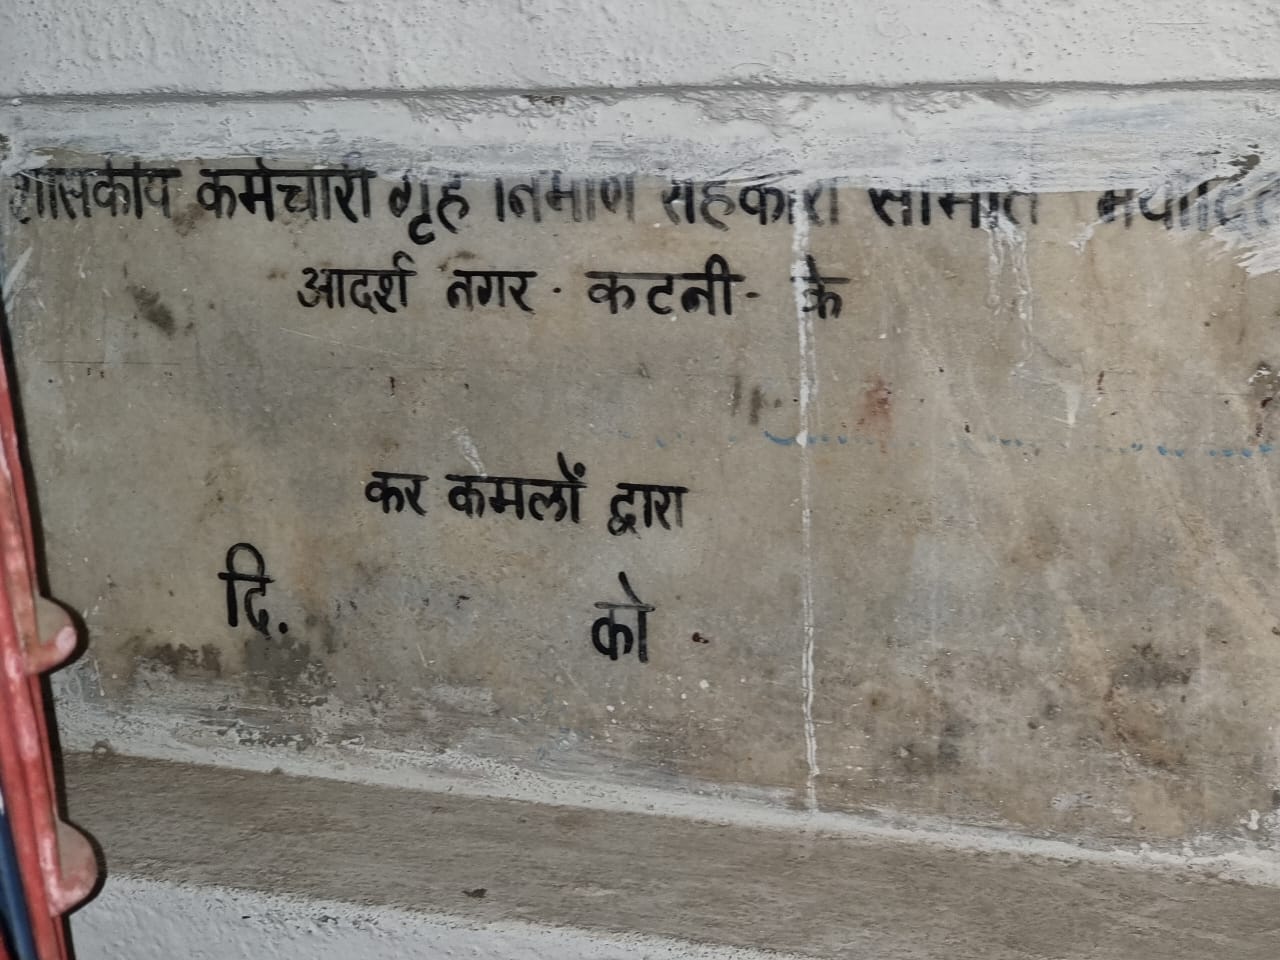 शासकीय कर्मचारी गृह निर्माण सहकारी समिति मर्यादित
आदर्श नगर - कटनी - के
कर कमलों द्वारा
दि. को -